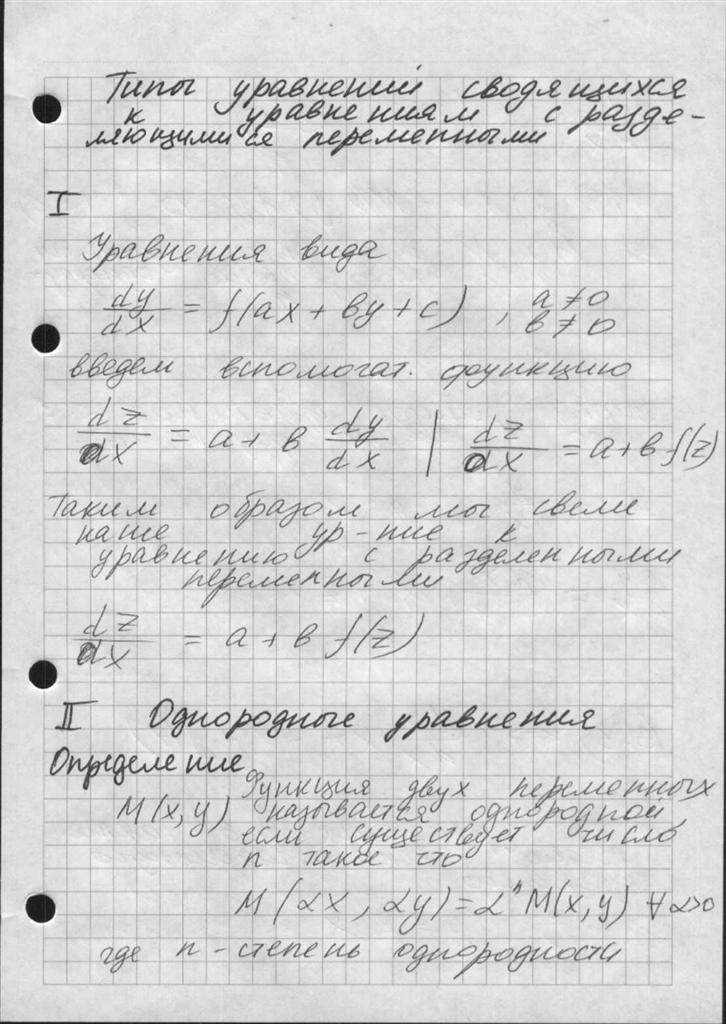 Типы уравнений сводящихся
к уравнениям с разде-
ляющимися переменными
I
Уравнения вида
dy/dx = f(ax + by + c) , a ≠ 0
b ≠ 0
введем вспомогат. функцию
dz/dx = a + b dy/dx | dz/dx = a + b f(z)
Таким образом мы свели
наше ур-ние к
уравнению с разделенными
переменными
dz/dx = a + b f(z)
II Однородные уравнения
Определение
Функция двух переменных
M(x, y) называется однородной,
если существует число
n такое что
M(αx, αy) = αⁿ M(x, y) ∀ α>0
где n - степень однородности